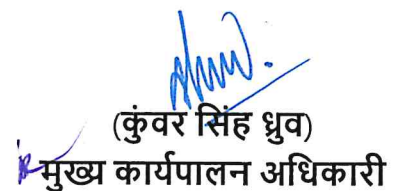 (कुंवर सिंह ध्रुव)
मुख्य कार्यपालन अधिकारी